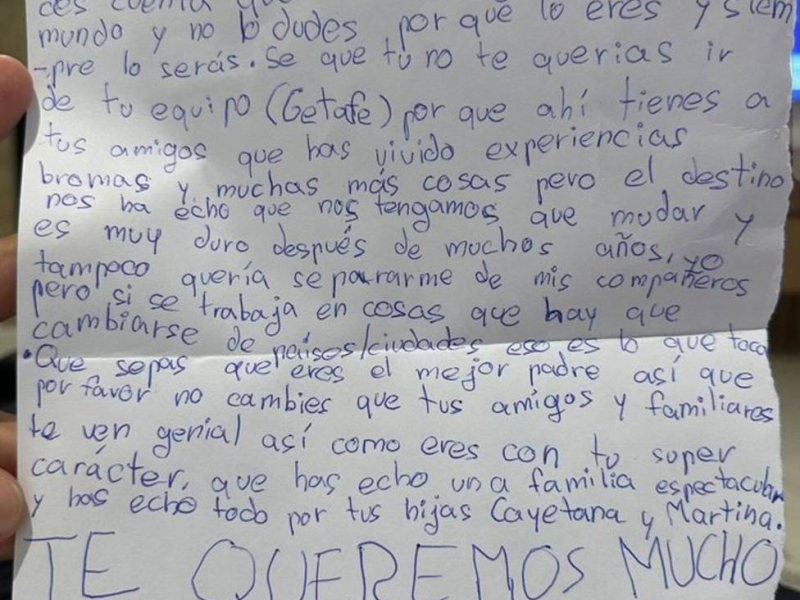 ces cuenta que
mundo y no lo dudes porque lo eres y siem
-pre lo serás. Se que tu no te querias ir
de tu equipo (Getafe) por que ahí tienes a
tus amigos que has vivido experiencias
bromas y muchas más cosas pero el destino
nos ha echo que nos tengamos que mudar y
es muy duro después de muchos años, yo
tampoco quería separarme de mis compañeros
pero si se trabaja en cosas que hay que
cambiarse de países/ciudades eso es lo que toca
•Que sepas que eres el mejor padre así que
por favor no cambies que tus amigos y familiares
te ven genial así como eres con tu super
carácter, que has echo una familia espectacular
y has echo todo por tus hijas Cayetana y Martina.
TE QUEREMOS MUCHO